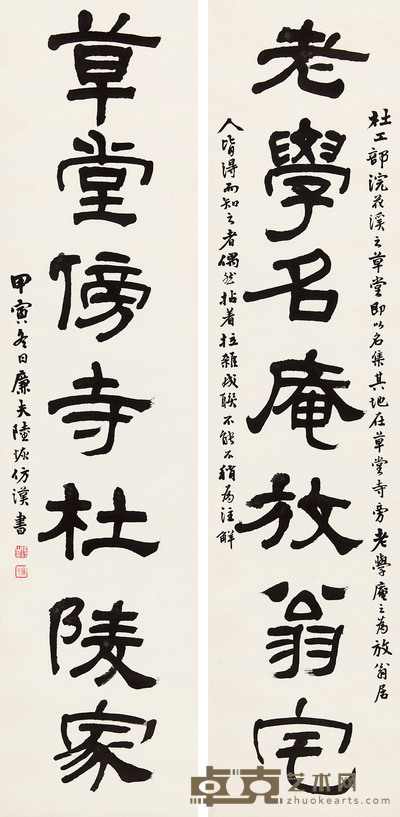 杜工部浣花溪之草堂即以名集其地在草堂寺旁老學庵之為放翁居
老學名庵放翁宅
人皆得而知之者偶然拈着拉雜成聯不能不稍為注解
草堂傍寺杜陵家
甲寅冬日廉夫陸恢仿漢書
卓克艺术网
zhuokearts.com